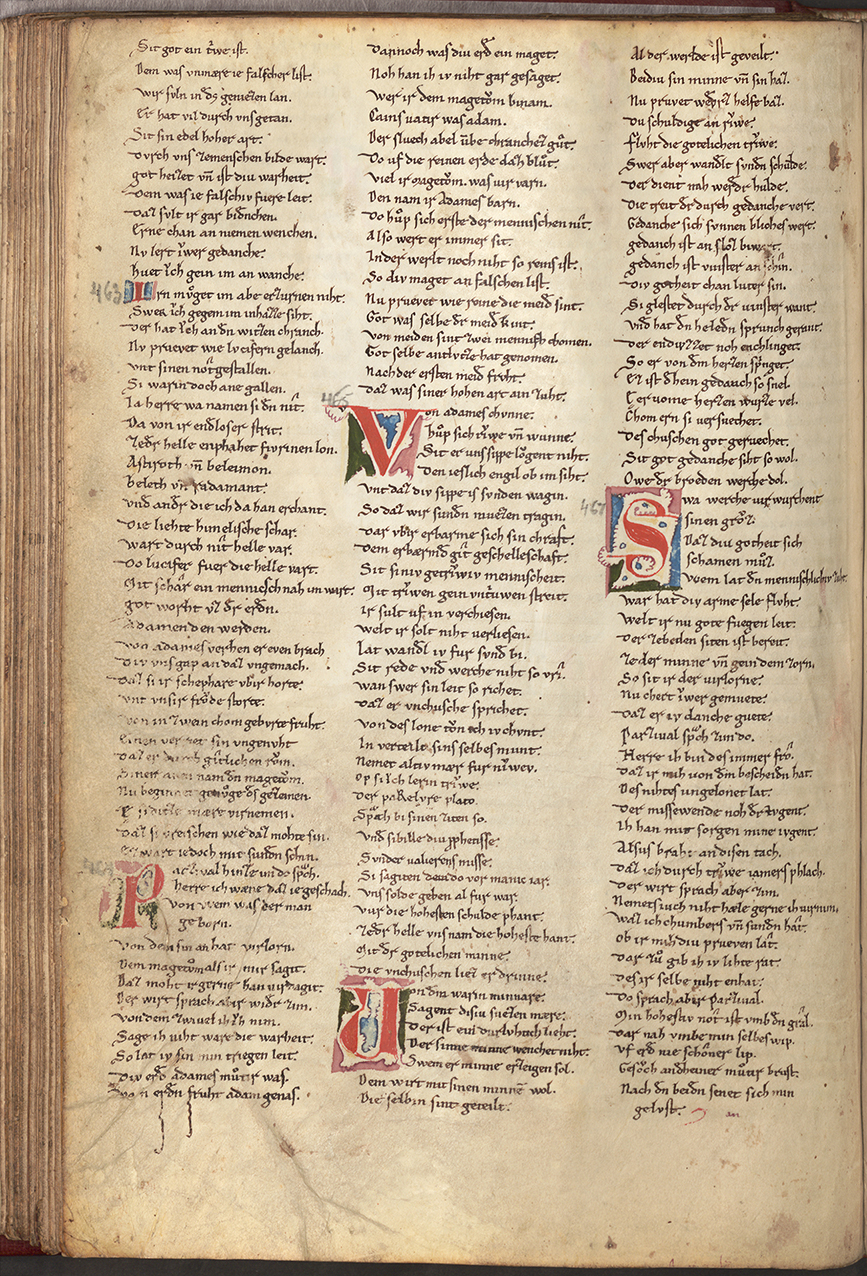 Sit got ein triwe ist.
Dem was vnmære ie falscher list.
wir svln in des geniezen lan.
Er hat vil durch vns getan.
Sit sin edel hoher art.
Durch vns zemenschen bilde wart.
got heizet vn̄ ist diu warheit.
Dem was ie falschiv fuere leit.
Daz svlt ir gar bidenchen.
Erne chan an niemen wenchen.
Nv lert iwer gedanche.
huet iͮch gein im an wanche.
463
Irn mvget im abe erzurnen niht.
Swer iͮch gegem im in hazze siht.
Der hat iͮch an den witzen chranch.
Nv pruevet wie lvcifern gelanch.
vnt sinen notgestallen.
Si warin doch ane gallen.
Ja herre wa namen si den nit.
Da von ir endloser strit.
Zeder helle enphahet sivrinen lon.
Astiroth vn̄ belcimon.
Beleth vn̄ radamant.
vnd ander die ich da han erchant.
Die liehte himelische schar.
wart durch nit helle var.
Do lucifer fuer die helle vart.
Mit schar ein mennesch nah im wart.
got worht vz der erden.
Adamen den werden.
von adames verhen er even brach
Div vns gap an daz vngemach.
Daz si ir schephare vbir horte.
vnt vnsir frode storte.
von in zwein chom gebvrte fruht.
Einem geriet sin vngenuht
Daz er durch gitlichen rom.
Siner anen nam den magetom.
Nu beginnet genvge des gezemen.
E si ditze mære virnemen.
Daz si vreischen wie daz mohte sin.
Ez wart iedoch mit sunden schin.
464
Parzival hin ze im do sprach.
herre ich wæne daz ie geschach.
von wem was der man
geborn.
von dem sin an hat virlorn.
Dem magetom als ir mir sagit.
Daz moht ir gerne han virdagit.
Der wirt sprach abir wider zim.
von dem zwivel ih iͮch nim.
Sage ih niht ware die warheit.
So lat iv sin min triegen leit.
Div erd adames mvtir was.
Von erden fruht adam genas.
Dannoch was diu erd ein maget.
Noh han ih iv niht gar gesaget.
wer ir dem magetom binam.
Cains vatir was adam.
Der sluech abel vmbe chranchez gvt.
Do vf die reinen erde daz blvt.
viel ir magetom. was vir varn.
Den nam ir Adames barn.
Do hvp sich erste der mennischen nit.
Also wert er immer sit.
In der werlt noch niht so reins ist.
So div maget an falschen list.
Nu pruevet wie reine die meid sint.
Got was selbe der meid kint.
von meiden sint zwei mennisch chomen.
Got selbe antlvtze hat genomen.
Nach der ersten meid fruht.
Daz was siner hohen art ain zuht.
465
Von adames chvnne.
hvp sich riwe vn̄ wunne.
Sit er uns sippe lovgent niht.
Den ieslich engil ob im siht.
vnt daz div sippe ist svnden wagin.
So daz wir sunden mvezen tragin.
Dar vbir erbarme sich sin chraft.
Dem erbærmd git geschelleschaft.
Sit siniv getriwiv mennischeit.
Mit triwen gein vntriwen streit.
ir sult vf in verchiesen.
welt ir solt niht verliesen.
Lat wandl iv fur svnd bi.
Sit rede vnd werche niht so vri.
wan swer sin leit so richet.
Daz er vnchusche sprichet.
von des lone tvn ich iv chunt.
In verteilt sins selbes munt.
Nemet altiv mær fur niwev.
Op si iͮch lerin triwe.
Der pareliure plato.
Sprach bi sinen ziten so.
vnd sibille diu pphetisse.
Svnder valierens misse.
Si sagiten dendo vor manic iar.
vns solde geben al fur war.
vur die hohesten schulde phant.
Zeder helle vns nam die hohesté hant.
Mit der gotelichen minne.
Die vnchuschen liez er drinne.
Von dem warin minnare.
Sagent disiu suezen mære.
Der ist ein durluhtich lieht.
Der sinne minne wenchet niht.
Swem er minne erzeigen sol.
Dem wirt mit sinen minnen wol.
Die selbin sint geteilt.
Al der werlde ist geveilt.
Beidiu sin minne vn̄ sin haz.
Nu pruevet wederz helfe baz.
Du schuldige an riwe.
Flvht die gotelichen triwe.
Swer aber wandlt svnden schulde.
Der dient nah werder hulde.
Die treit der durch gedanche vert.
Gedanche sich svnnen bliches wert.
gedanch ist an sloz biwart.
gedanch ist vinster an schin.
Div gotheit chan luter sin.
Si glestet durch der vinster want.
vnd hat den heleden sprunch gerant.
Der endivzzet noh enchlinget.
So er von dem herzen springet.
Ez ist dhein gedanch so snel.
E er vome herzen wurze vel.
Chom ern si versuechet.
Des chuschen got geruechet.
Sit got gedanche siht so wol.
Owe der broeden werche dol.
467
Swa werche virwurchent
sinen groz.
Daz diu gotheit sich
schamen mvz.
wem lat den mennischlichiv zuht.
war hat div arme sele flvht.
welt ir nu gote fuegen leit.
Der zebeden siten ist bereit.
Zeder minne vn̄ gein dem zorn.
So sit ir der virlorne.
Nu chert iwer gemuete.
Daz er iv danche guete.
Parzival sprach zim do.
Herre ih bin des immer fro.
Daz ir mih von dem bescheiden hat.
Des nihtes vngelonet lat.
Der missewende noh der tvgent.
Ih han mit sorgen mine ivgent.
Alsus braht an disen tach.
Daz ich durch triwe iamers phlach.
Der wirt sprach aber zim.
Nemetsiuch niht hæle gerne ih virnim.
waz ich chumbers vn̄ sunden hat.
Ob ir mih diu prueven lat.
Dar zv gib ih iv lihte rat.
Des ir selbe niht enhat.
Do sprach abir Parzival.
Min hohestiv not ist vmb den gral.
Dar nah vmbe min selbes wip.
vf erd nie schoner lip.
Gesoch an dheiner mvtir brust.
Nach den beiden senet sich min
gelust.